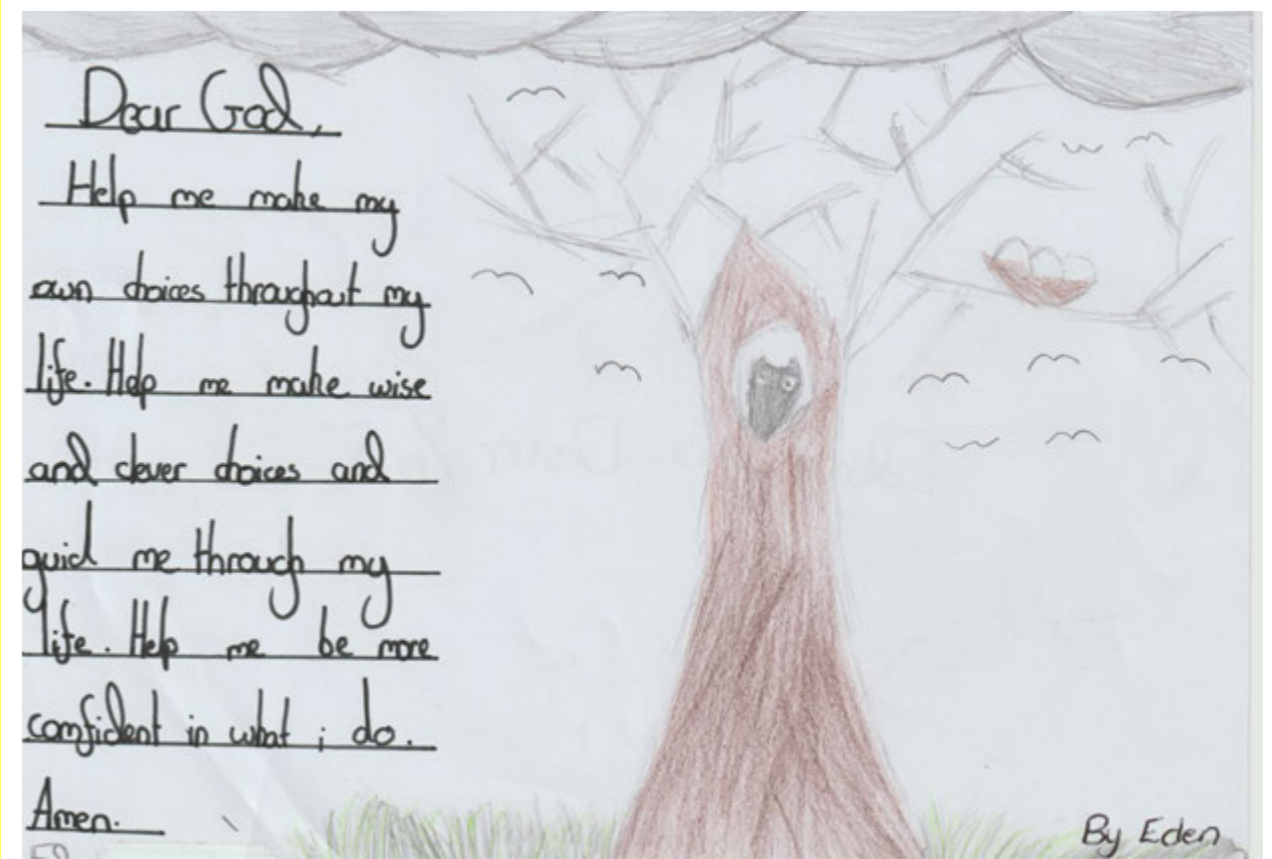 Dear God,
Help me make my
own choices throughout my
life. Help me make wise
and clever choices and
guid me through my
life. Help me be more
comfident in what i do.
Amen.
By Eden